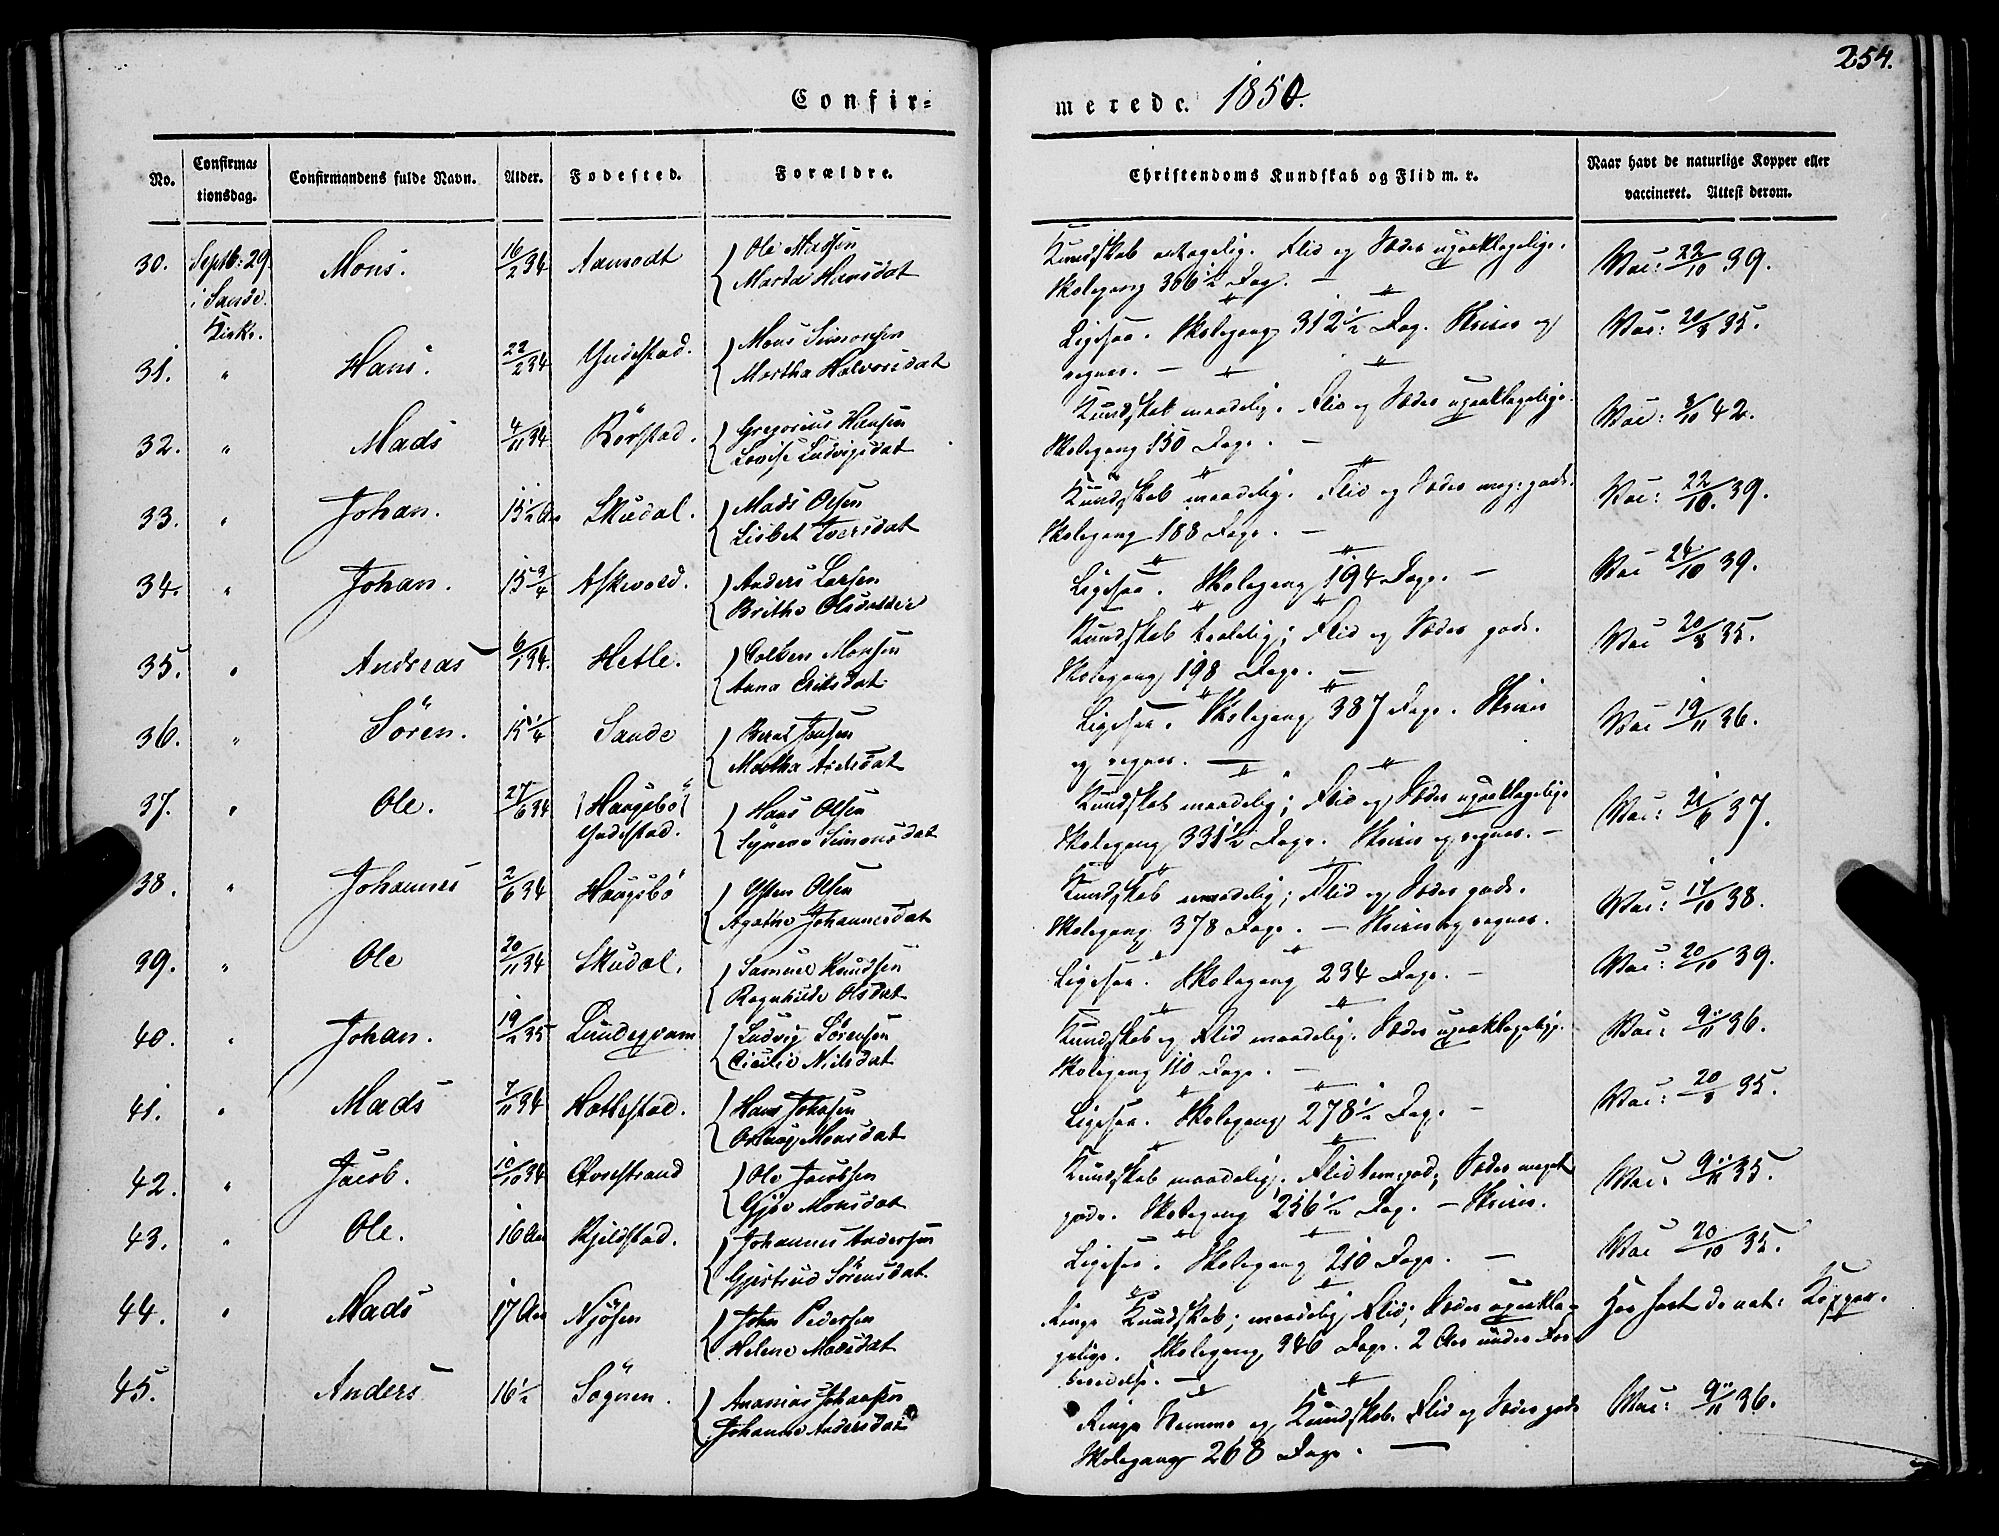 254.
Confir=
merede. 1850.
No.
Confirma=
tionsdag.
Confirmandens fulde Navn.
Alder.
Fødested.
Forældre.
Christendoms Kundskab og Flid m. v.
Naar havt de naturlige Kopper eller
vaccineret. Attest derom.
30. Septb: 29. Mons. 16/2 34
Ole Madsen
i Sande
Kirke.
Skolegang 306½ Dag. —
Vac: 22/10 39.
31. " Hans. 22/2 34 Yndestad.
Mons Simonsen
Martha Halvorsdat
Ligesaa. Skolegang 312½ Dag. Skriver og
regner. —
Vac: 20/8 35.
32. " Mads 4/11 34 Rörstad.
Gregorius Hansen
Lovise Ludvigsdat
Kundskab maadelig. Flid og Sæder upaaklagelige.
Skolegang 150 Dage. —
Vac: 8/10 42.
33. " Johan. 15½ Aar Skudal.
Mads Olsen
Lisbet Iversdat
Kundskab maadelig. Flid og Sæder meg: gode.
Skolegang 188 Dage. —
Vac: 22/10. 39.
34. " Johan. 15¾ Askevold.
Anders Larsen
Brithe Olsdatter
Ligesaa. Skolegang 194 Dage. —
Vac 24/10 39.
35. " Andreas 6/1 34. Hetle.
Monsen
Anna Eriksdat
Kundskab taalelig; Flid og Sæder gode.
Skolegang 198 Dage. —
Vac 20/8 35.
36. " Sören. 15¼ Sande
Bernt Jonsen
Martha
Ligesaa. Skolegang 387 Dage. Skriver
og regner. —
Vac 19/11 36.
37. " Ole. 27/6 34 Haugsbö
Hans Olsen
Yndestad.
Synneve Simonsdat
Kundskab maadelig; Flid og Sæder upaaklagelige
Skolegang 331½ Dage. Skriver og regner. —
Vac: 21/6 37.
38. " Johannes 2/6 34 Haugsbö
Olsen
Agathe Johannesdat
Kundskab maadelig; Flid og Sæder gode.
Skolegang 378 Dage. — Skriver og regner.
Vac: 17/10 38.
39. " Ole 20/11 34 Skudal.
Samuel Knudsen
Ragnhilde Olsdat
Ligesaa. Skolegang 234 Dage. —
Vac: 20/10 39.
40. " Johan. 19/2 35
Ludvig Sörensen
Cicilie Nilsdat
Kundskab og Flid maadelig. Sæder upaaklagelige.
Skolegang 110 Dage. —
Vac: 9/11 36.
41. " Mads 7/11 34 Hatlestad.
Hans
Monsdat
Ligesaa. Skolegang 278½ Dag. —
Vac: 20/8 35.
42. " Jacob. 10/10 34 Qvestrand
Ole Jacobsen
Monsdat
Kundskab maadelig. Flid god; Sæder meget
gode. Skolegang 256½ Dag. — Skriver.
Vac: 9/11 35.
43. " Ole. 16 Aar Kjelstad.
Johannes Andersen
Gjertrud Sörensdat
Ligesaa. Skolegang 210 Dage. —
Vac 20/10 35.
44. " Mads 17 Aar Njösen
John Pedersen
Helene Madsdat
Ringe Kundskab; maadelig Flid; Sæder upaakla-
gelige. Skolegang 346 Dage. 2 Aar under For-
beredelse. —
Har havt de nat: Kopper.
45. Anders 16½ Sögnen.
Ananias Johansen
Johanne Andersdat
Ringe Nemme og Kundskab. Flid og Sæder gode
Skolegang 268 Dage. —
Vac: 9/11 36.